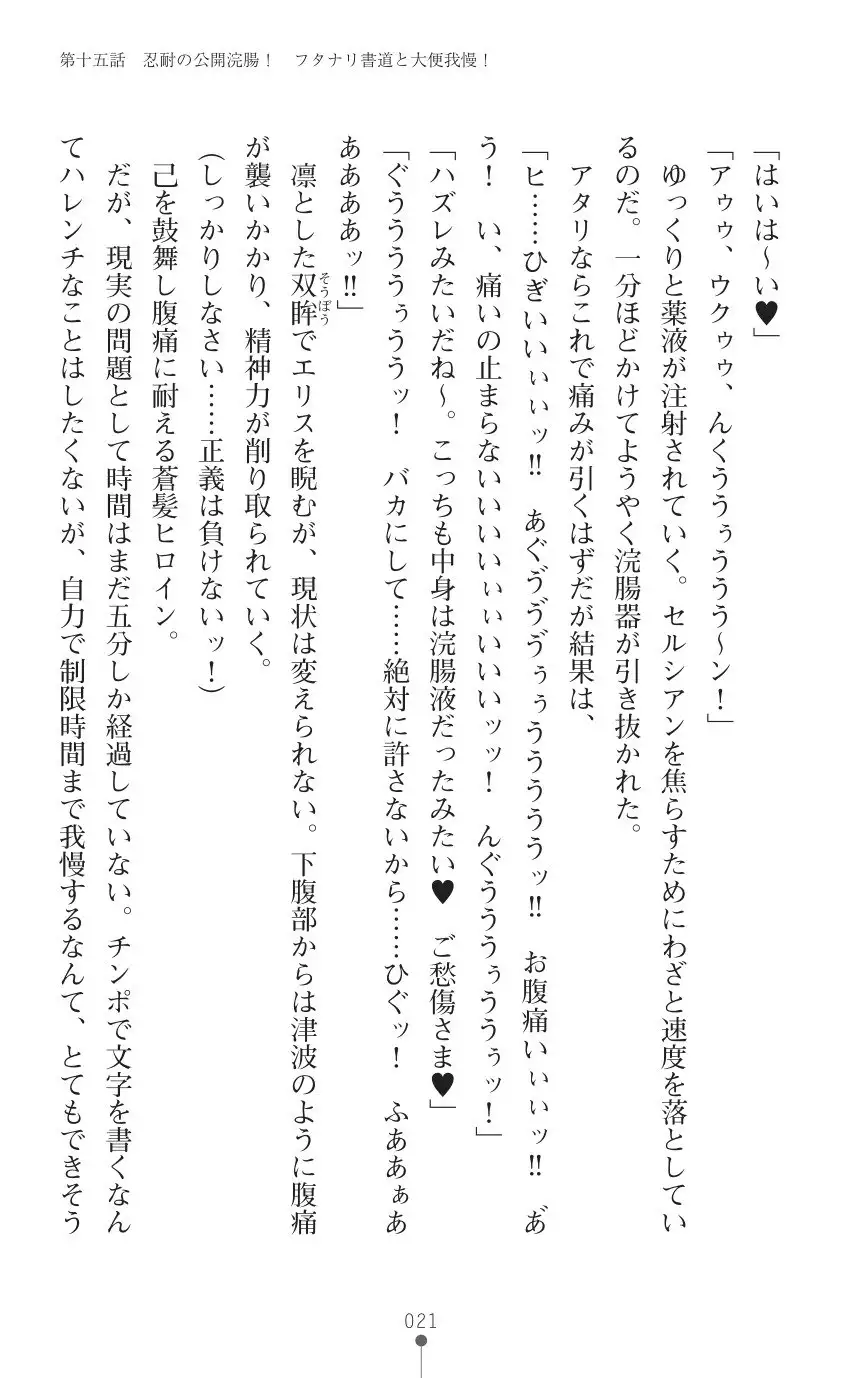 第十五話　忍耐の公開浣腸！　フタナリ書道と大便我慢！
「はいは～い♥」
「アゥゥ、ウクゥゥ、んくううぅううう～ン！」
　ゆっくりと薬液が注射されていく。セルシアンを焦らすためにわざと速度を落としてい
るのだ。一分ほどかけてようやく浣腸器が引き抜かれた。
　アタリならこれで痛みが引くはずだが結果は、
「ヒ……ひぎいいぃぃッ!!　あぐゔゔゔぅぅうううううッ!!　お腹痛いぃぃッ!!　あ゙
う！　い、痛いの止まらないいいいぃぃいいいッッ！　んぐうううぅううぅッ！」
「ハズレみたいだね～。こっちも中身は浣腸液だったみたい♥　ご愁傷さま♥」
「ぐうううぅううッ！　バカにして……絶対に許さないから……ひぐッ！　ふああぁあ
ああああッ!!」
　凛とした双眸そうぼうでエリスを睨むが、現状は変えられない。下腹部からは津波のように腹痛
が襲いかかり、精神力が削り取られていく。
（しっかりしなさい……正義は負けないッ！）
　己を鼓舞し腹痛に耐える蒼髪ヒロイン。
　だが、現実の問題として時間はまだ五分しか経過していない。チンポで文字を書くなん
てハレンチなことはしたくないが、自力で制限時間まで我慢するなんて、とてもできそう
021